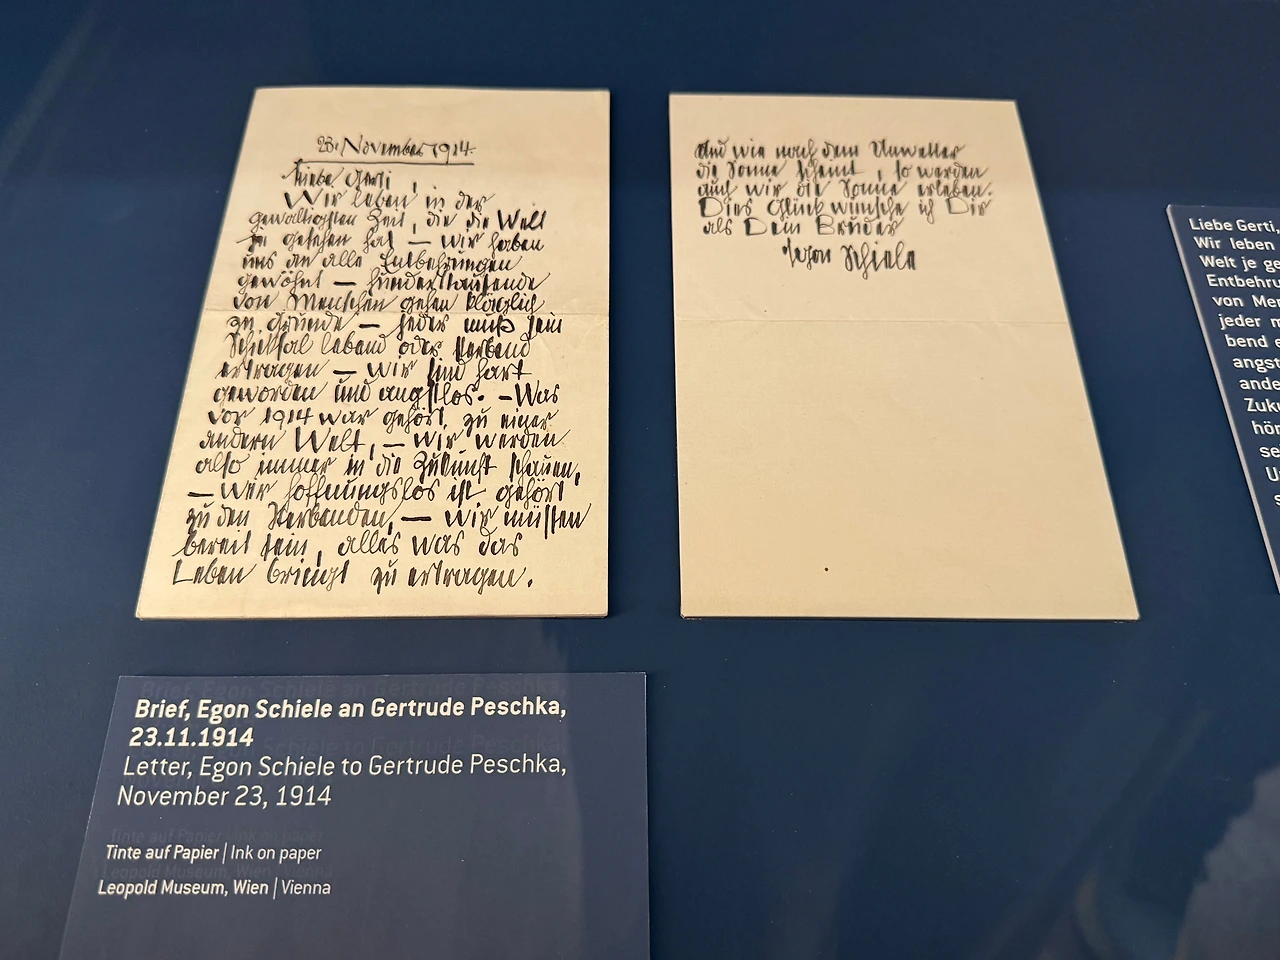 23. November 1914.
Liebe Gerti,
Wir leben in der
gewaltigsten Zeit, die die Welt
je gesehen hat — wir haben
uns an alle Entbehrungen
gewöhnt — hunderttausende
von Menschen gehen kläglich
zu Grunde — jeder muß sein
Schicksal lebend oder sterbend
ertragen — wir sind hart
geworden und angstlos. — Was
vor 1914 war gehört zu einer
andern Welt, — wir werden
also immer in die Zukunft schauen,
— wer hoffnungslos ist gehört
zu den Sterbenden, — wir müssen
bereit sein, alles was das
Leben bringt zu ertragen.
Und wie nach dem Unwetter
die Sonne scheint, so werden
auch wir die Sonne erleben.
Dies Glück wünsche ich Dir
als Dein Bruder
Egon Schiele
Liebe Gerti,
Wir leben
Welt je ge
Entbehru
von Men
jeder m
bend e
angst
ande
Zuku
hör
se
U
s
Brief, Egon Schiele an Gertrude Peschka,
23.11.1914
Letter, Egon Schiele to Gertrude Peschka,
November 23, 1914
Tinte auf Papier | Ink on paper
Leopold Museum, Wien | Vienna